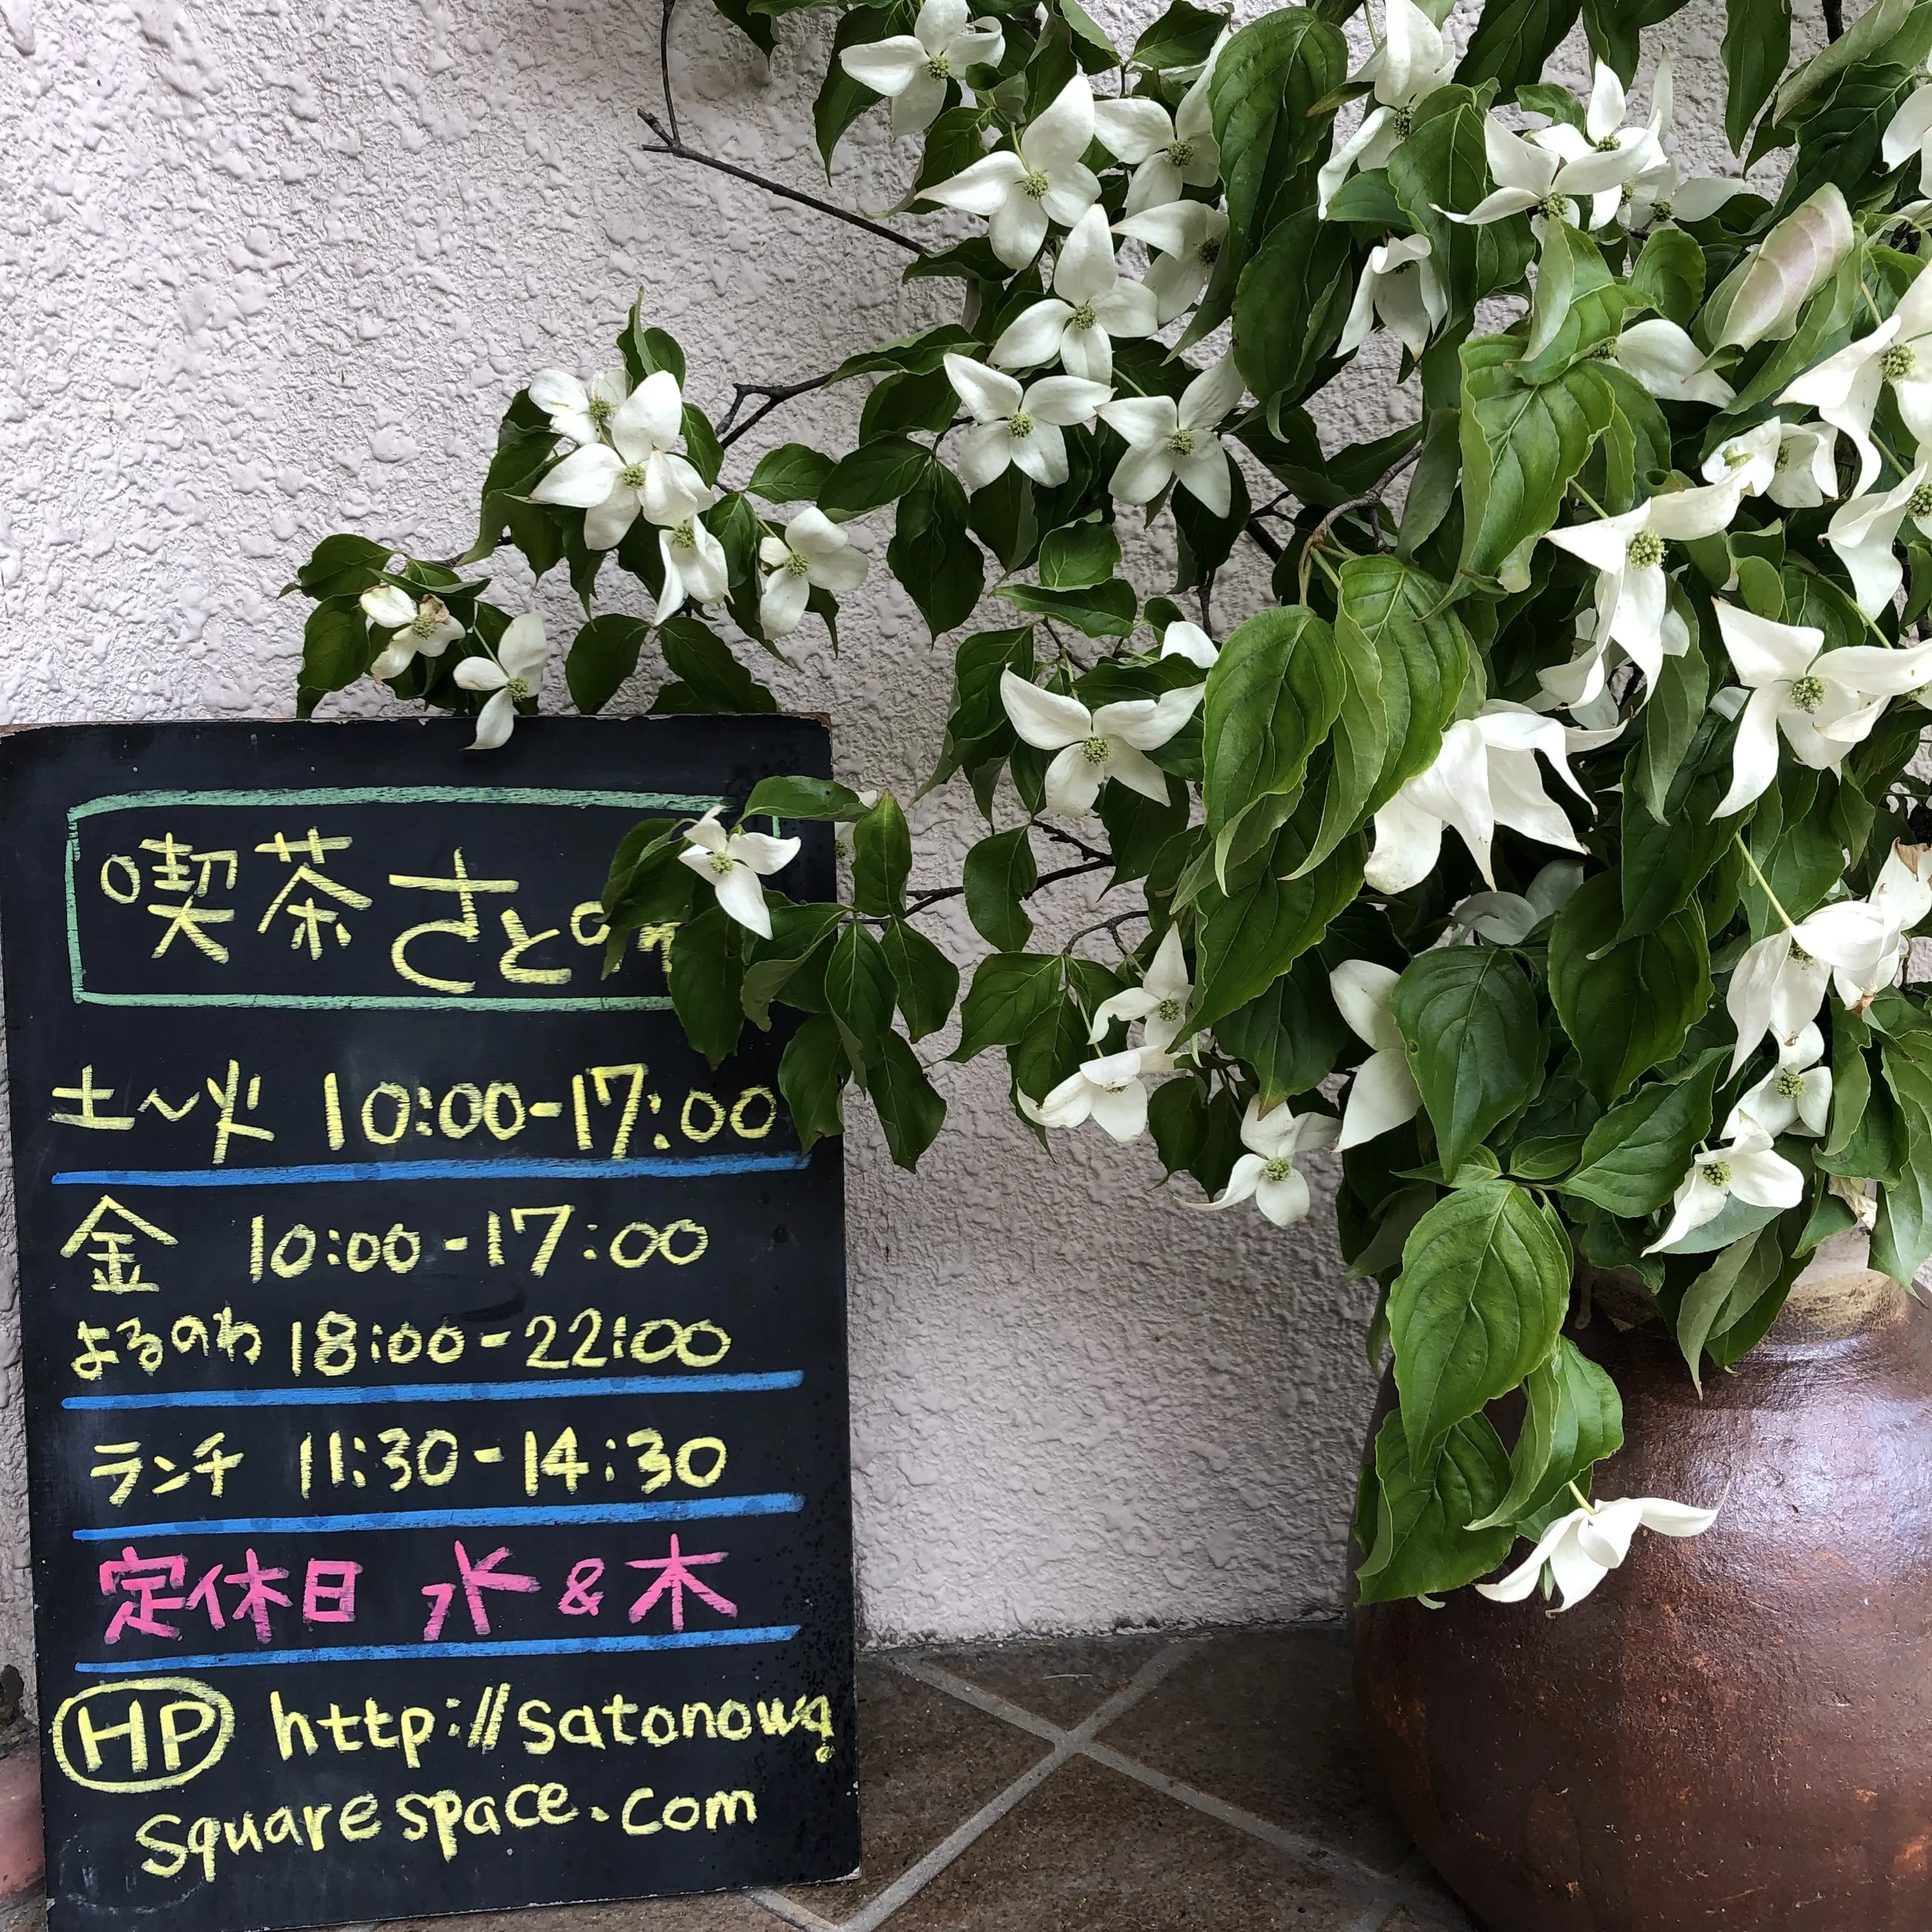 喫茶 さとの
土〜火 10:00-17:00
金 10:00-17:00
よるのわ 18:00-22:00
ランチ 11:30-14:30
定休日 水&木
HP http://satonowa.
squarespace.com